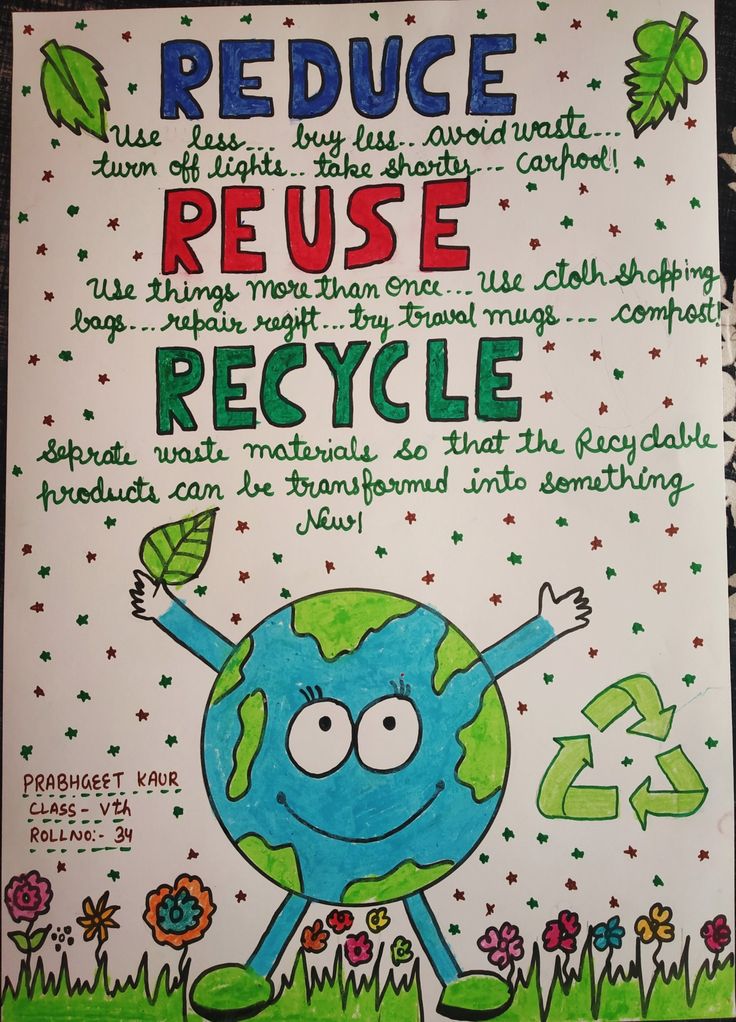 REDUCE
Use less... buy less.. avoid waste...
turn off lights.. take shorter... Carpool!
REUSE
Use things more than once... Use cloth shopping
bags... repair regift... try traval mugs ... compost!
RECYCLE
Seprate waste materials so that the Recyclable
products can be transformed into something
New!
PRABHGEET KAUR
CLASS- Vth
ROLLNO:- 34